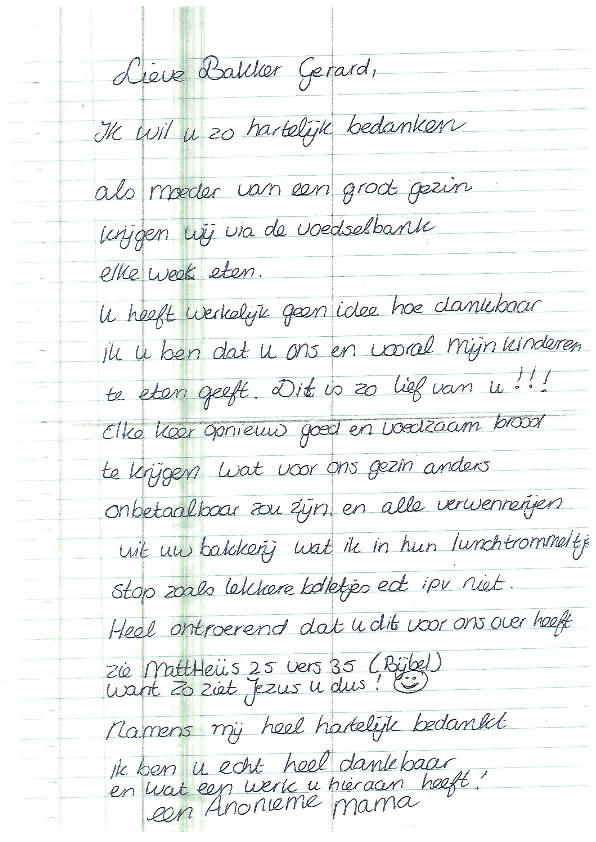 Lieve Bakker Gerard,
Ik wil u zo hartelijk bedanken
als moeder van een groot gezin
krijgen wij via de voedselbank
elke week eten.
U heeft werkelijk geen idee hoe dankbaar
ik u ben dat u ons en vooral mijn kinderen
te eten geeft. Dit is zo lief van u!!!
Elke keer opnieuw goed en voedzaam brood
te krijgen wat voor ons gezin anders
onbetaalbaar zou zijn, en alle verwennerijen
uit uw bakkerij wat ik in hun lunchtrommeltje
stop zoals lekkere bolletjes ect ipv niet.
Heel ontroerend dat u dit voor ons over heeft
zie Mattheüs 25 vers 35 (Bijbel)
want zo ziet Jezus u dus! ☺
Namens mij heel hartelijk bedankt
ik ben u echt heel dankbaar
en wat een werk u hieraan heeft!
een Anonieme mama